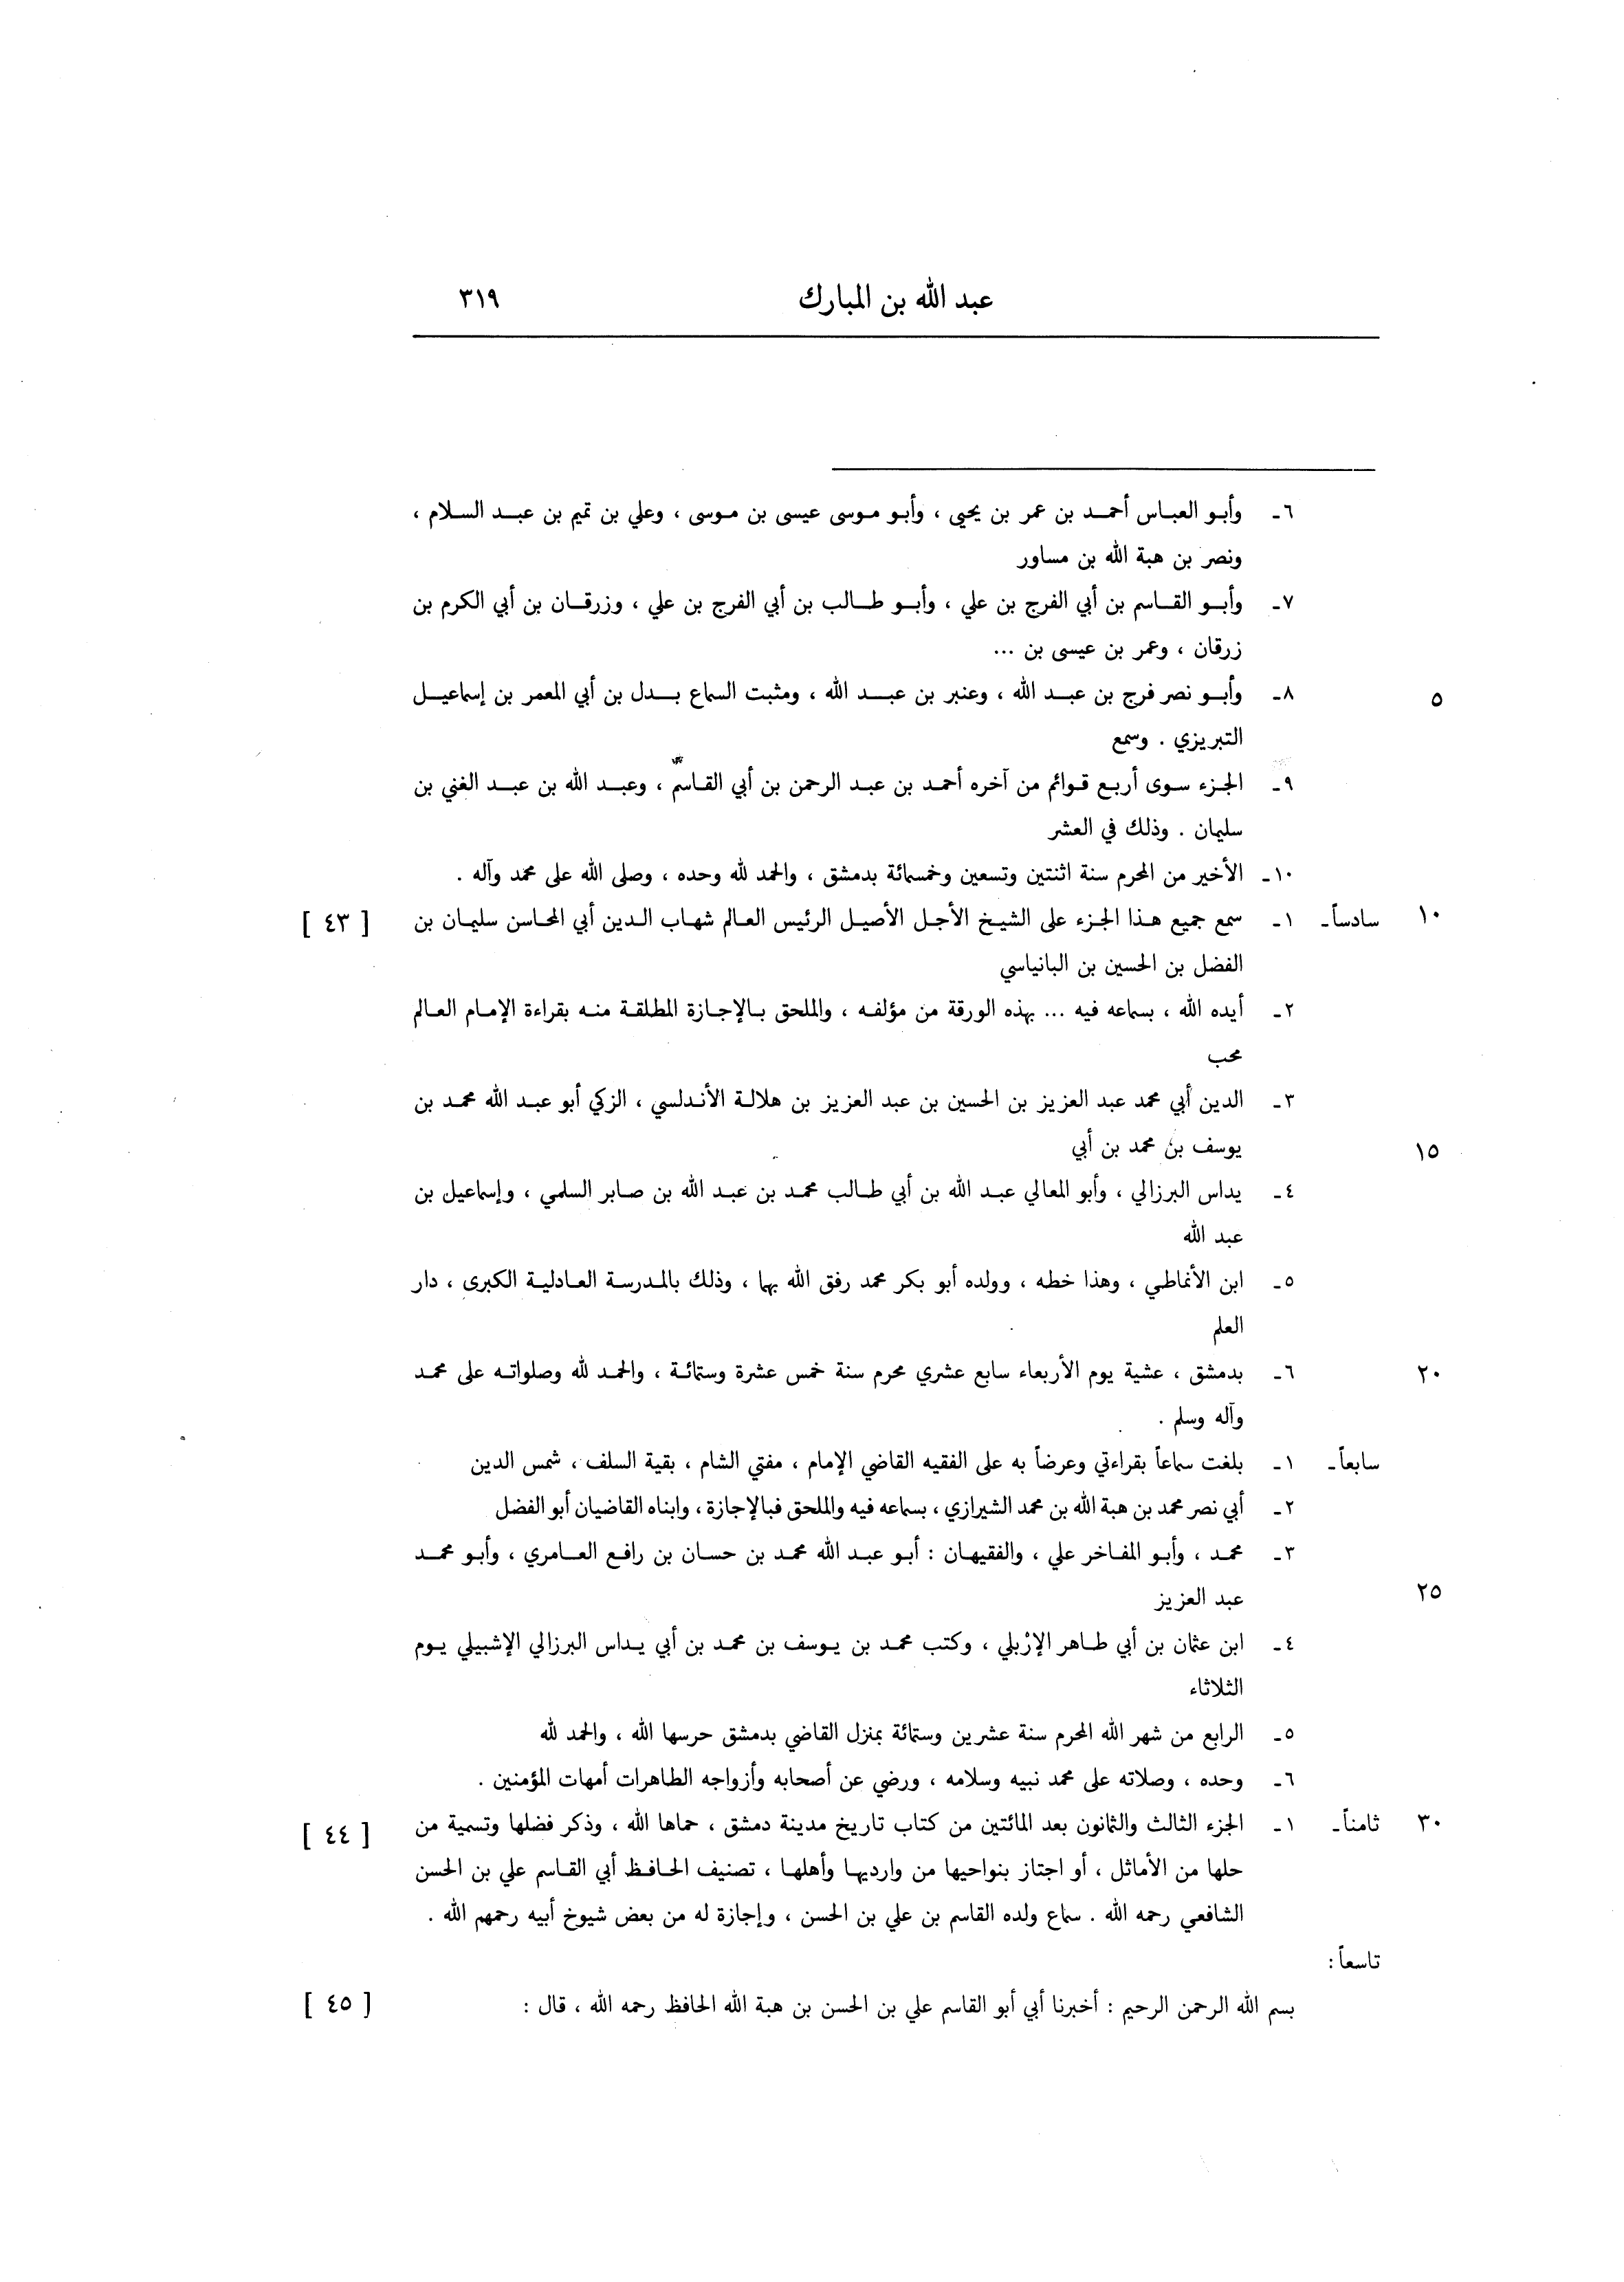 عبد الله بن المبارك ٣١٩
٦ـ وأبو العباس أحمد بن عمر بن يحيى ، وأبو موسى عيسى بن موسى ، وعلي بن تميم بن عبد السلام ،
ونصر بن هبة الله بن مساور
٧ـ وأبو القاسم بن أبي الفرج بن علي ، وأبو طالب بن أبي الفرج بن علي ، وزرقان بن أبي الكرم بن
زرقان ، وعمر بن عيسى بن ...
٥ ٨ـ وأبو نصر فرج بن عبد الله ، وعنبر بن عبد الله ، ومثبت السماع بدل بن أبي المعمر بن إسماعيل
التبريزي . وسمع
٩ـ الجزء سوى أربع قوائم من آخره أحمد بن عبد الرحمن بن أبي القاسم ، وعبد الله بن عبد الغني بن
سليمان . وذلك في العشر
١٠ـ الأخير من المحرم سنة اثنتين وتسعين وخمسمائة بدمشق ، والحمد لله وحده ، وصلى الله على محمد وآله .
١٠ سادساً ـ ١ـ سمع جميع هذا الجزء على الشيخ الأجل الأصيل الرئيس العالم شهاب الدين أبي المحاسن سليمان بن [ ٤٣ ]
الفضل بن الحسين بن البانياسي
٢ـ أيده الله ، بسماعه فيه ... بهذه الورقة من مؤلفه ، والملحق بالإجازة المطلقة منه بقراءة الإمام العالم
محب
٣ـ الدين أبي محمد عبد العزيز بن الحسين بن عبد العزيز بن هلالة الأندلسي ، الزكي أبو عبد الله محمد بن
١٥ يوسف بن محمد بن أبي
٤ـ يداس البرزالي ، وأبو المعالي عبد الله بن أبي طالب محمد بن عبد الله بن صابر السلمي ، وإسماعيل بن
عبد الله
٥ـ ابن الأنماطي ، وهذا خطه ، وولده أبو بكر محمد رفق الله بهما ، وذلك بالمدرسة العادلية الكبرى ، دار
العلم
٢٠ ٦ـ بدمشق ، عشية يوم الأربعاء سابع عشري محرم سنة خمس عشرة وستمائة ، والحمد لله وصلواته على محمد
وآله وسلم .
سابعاً ـ ١ـ بلغت سماعاً بقراءتي وعرضاً به على الفقيه القاضي الإمام ، مفتي الشام ، بقية السلف ، شمس الدين
٢ـ أبي نصر محمد بن هبة الله بن محمد الشيرازي ، بسماعه فيه والملحق فبالإجازة ، وابناه القاضيان أبو الفضل
٣ـ محمد ، وأبو المفاخر علي ، والفقيهان : أبو عبد الله محمد بن حسان بن رافع العامري ، وأبو محمد
٢٥ عبد العزيز
٤ـ ابن عثمان بن أبي طاهر الإرْبلي ، وكتب محمد بن يوسف بن محمد بن أبي يداس البرزالي الإشبيلي يوم
الثلاثاء
٥ـ الرابع من شهر الله المحرم سنة عشرين وستمائة بمنزل القاضي بدمشق حرسها الله ، والحمد لله
٦ـ وحده ، وصلاته على محمد نبيه وسلامه ، ورضي عن أصحابه وأزواجه الطاهرات أمهات المؤمنين .
٣٠ ثامناً ـ ١ـ الجزء الثالث والثمانون بعد المائتين من كتاب تاريخ مدينة دمشق ، حماها الله ، وذكر فضلها وتسمية من [ ٤٤ ]
حلها من الأماثل ، أو اجتاز بنواحيها من وارديها وأهلها ، تصنيف الحافظ أبي القاسم علي بن الحسن
الشافعي رحمه الله . سماع ولده القاسم بن علي بن الحسن ، وإجازة له من بعض شيوخ أبيه رحمهم الله .
تاسعاً :
بسم الله الرحمن الرحيم : أخبرنا أبي أبو القاسم علي بن الحسن بن هبة الله الحافظ رحمه الله ، قال : [ ٤٥ ]